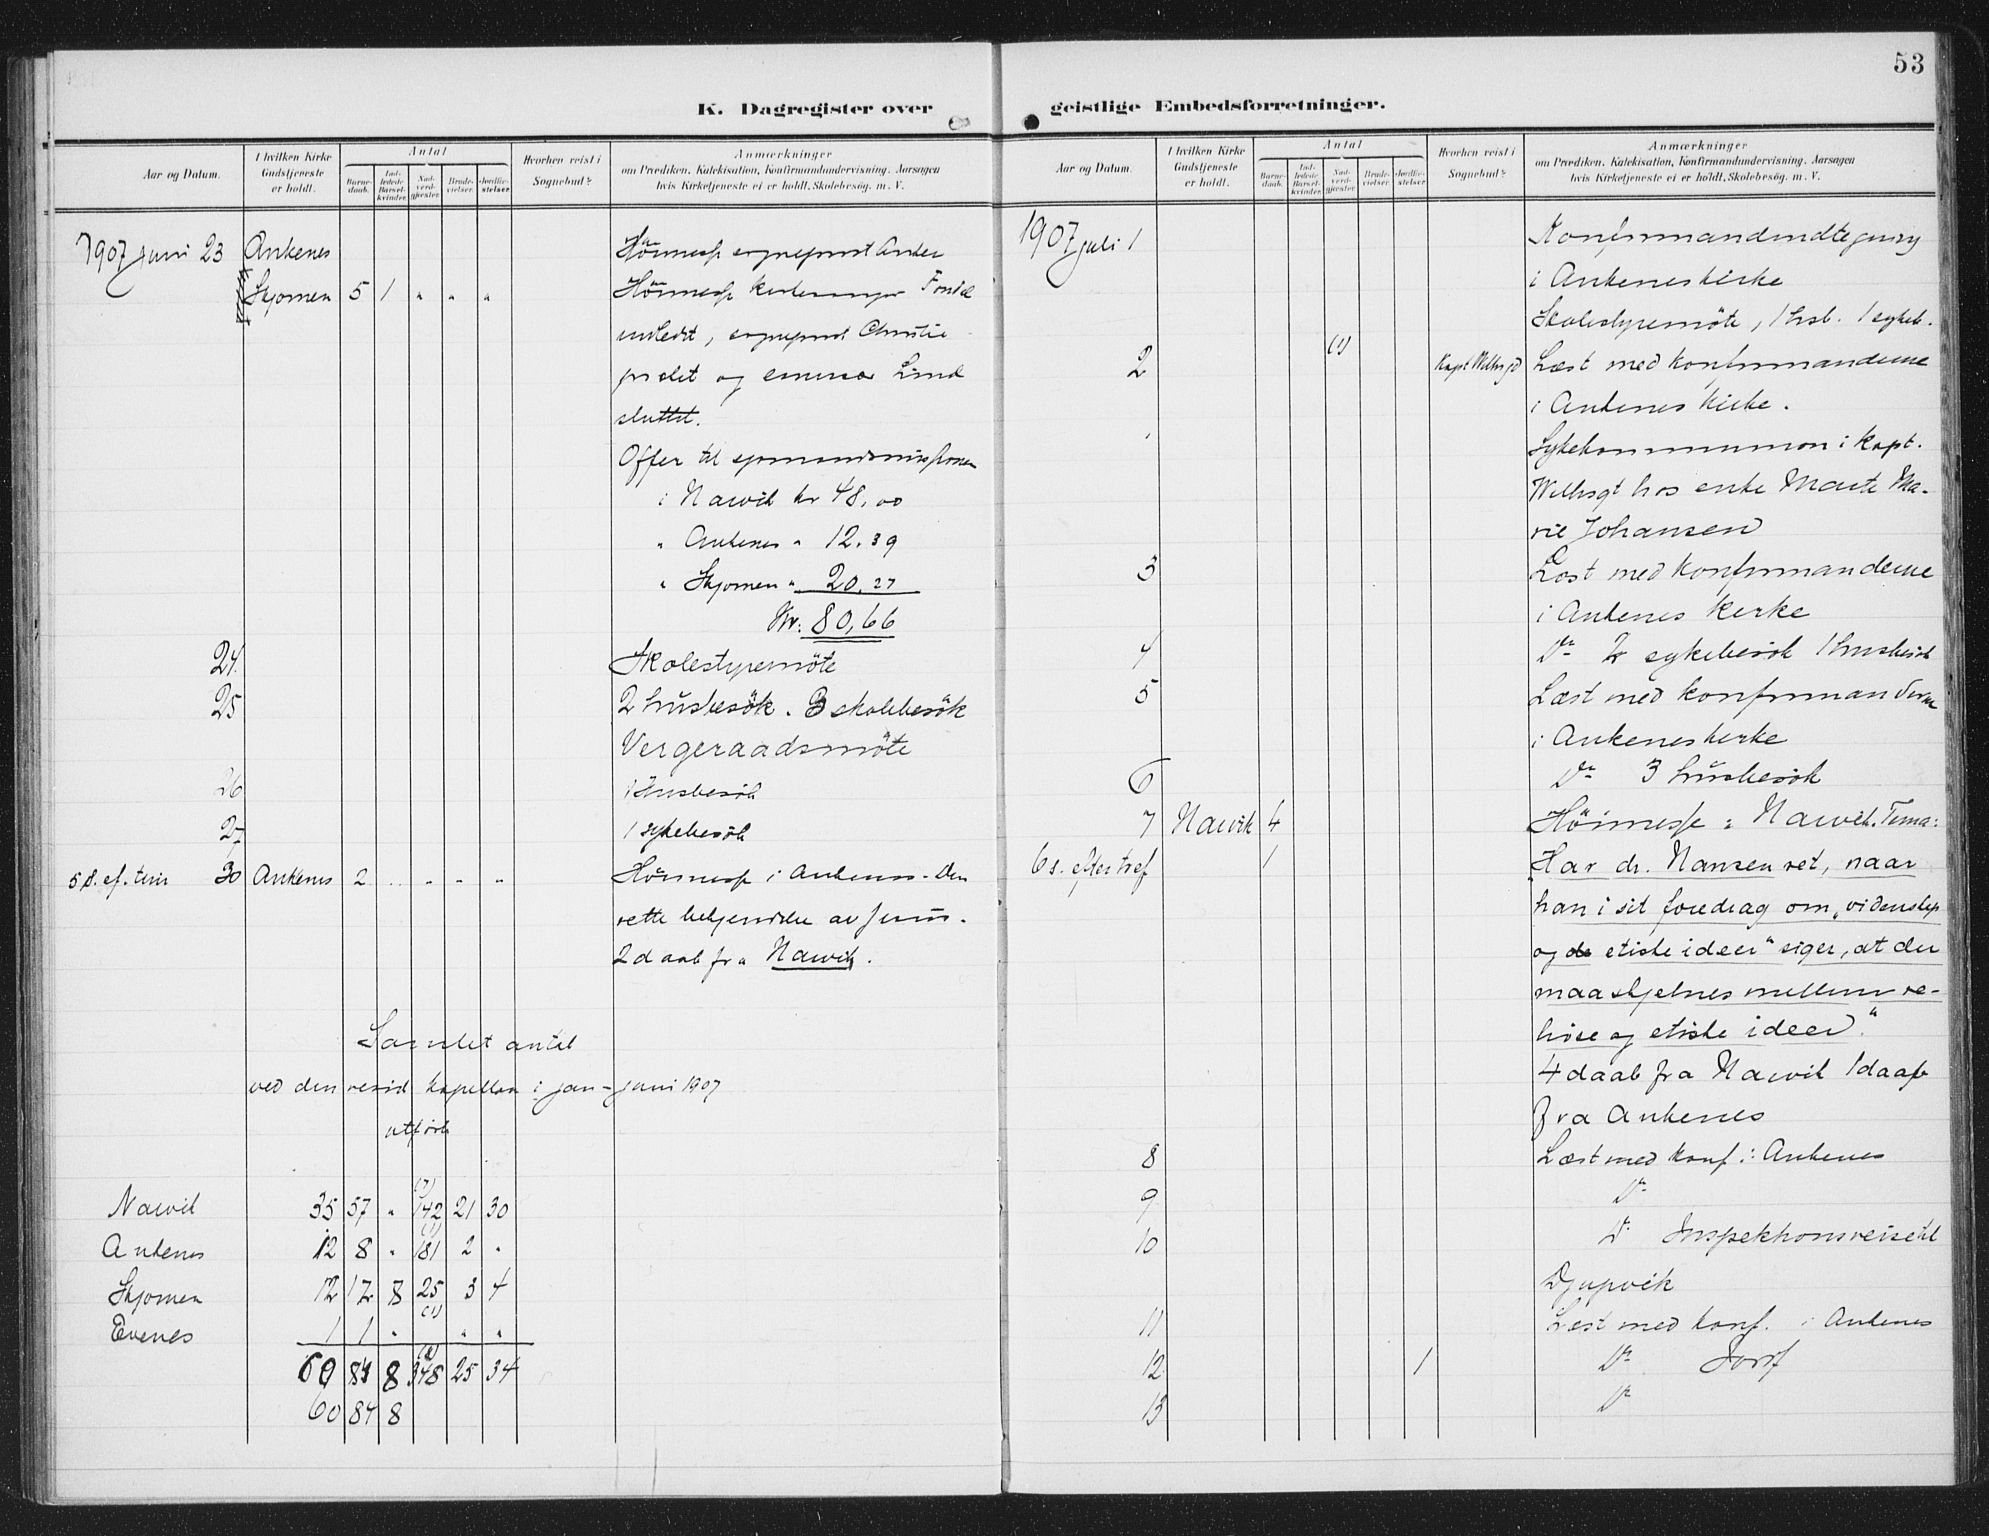 53
K. Dagregister over
geistlige Embedsforretninger.
Aar og Datum.
I hvilken Kirke Gudstjeneste er holdt.
Antal
Barne-daab.
Ind-ledede Barsel-kvinder.
Nad-verd-gjester.
Brude-vielser.
Jordfæ-stelser.
Hvorhen reist i Sognebud?
Anmærkninger
om Prædiken, Katekisation, Konfirmandundervisning, Aarsagen
hvis Kirketjeneste ei er holdt, Skolebesøg. m. V.
1907 juni 23 Ankenes
Skjomen 5 1 " " "
Offer til
i Narvik kr 48,00
" Ankenes " 12.39
" Skjomen " 20.27
Kr: 80,66
24. Skolestyremöte
25 2 husbesök. 3 skolebesök
Vergeraadsmöte
26 1 husbesök
27 1 sykebesök
30 Ankenes 2 " " " " Høimesse i Ankenes. Den
rette bekjendelse av Jesus.
2 daab fra Narvik.
Samlet antal
ved den resid kapellan i jan - juni 1907
utført
Narvik 35 57 " (7) 142 21 30
Ankenes 12 8 " (1) 181 2 "
Skjomen 12 17 8 25 3 4
Evenes 1 1 " (1) " "
60 84 8 348 25 34
60 84 8
Aar og Datum.
I hvilken Kirke Gudstjeneste er holdt.
Antal
Barne-daab.
Ind-ledede Barsel-kvinder.
Nad-verd-gjester.
Brude-vielser.
Jordfæ-stelser.
Hvorhen reist i Sognebud?
Anmærkninger
om Prædiken, Katekisation, Konfirmandundervisning, Aarsagen
hvis Kirketjeneste ei er holdt, Skolebesög. m. V.
1907 juli 1
i Ankenes kirke
Skolestyremöte, 1 husb. 1 sykeb.
2 (1) Læst med konfirmanderne
i Ankenes kirke.
Sykekommunion i Kapt.
hos enke Marte Ma-
rie Johansen
3 Læst med konfirmanderne
i Ankenes kirke
4 Do 2 sykebesök 1 husbesök
5 Læst med konfirmanderne
i Ankenes kirke
6 Do 3 husbesök
7 Narvik 4 Höimesse i Narvik. Tema:
6 s. efter tref 1 "Har dr. Nansen ret, naar
han i sit foredrag om "videnskap
og de etiske ideer" siger, at der
maa skjelnes mellem re-
ligiøse og etiske ideer."
4 daab fra Narvik 1 daab
fra Ankenes
8 Læst med konf. i Ankenes
9 Do
10 Do Inspektionsreise til
Djupvik
11 Læst med konf. i Ankenes
12 1 Do Jordf
13 Do